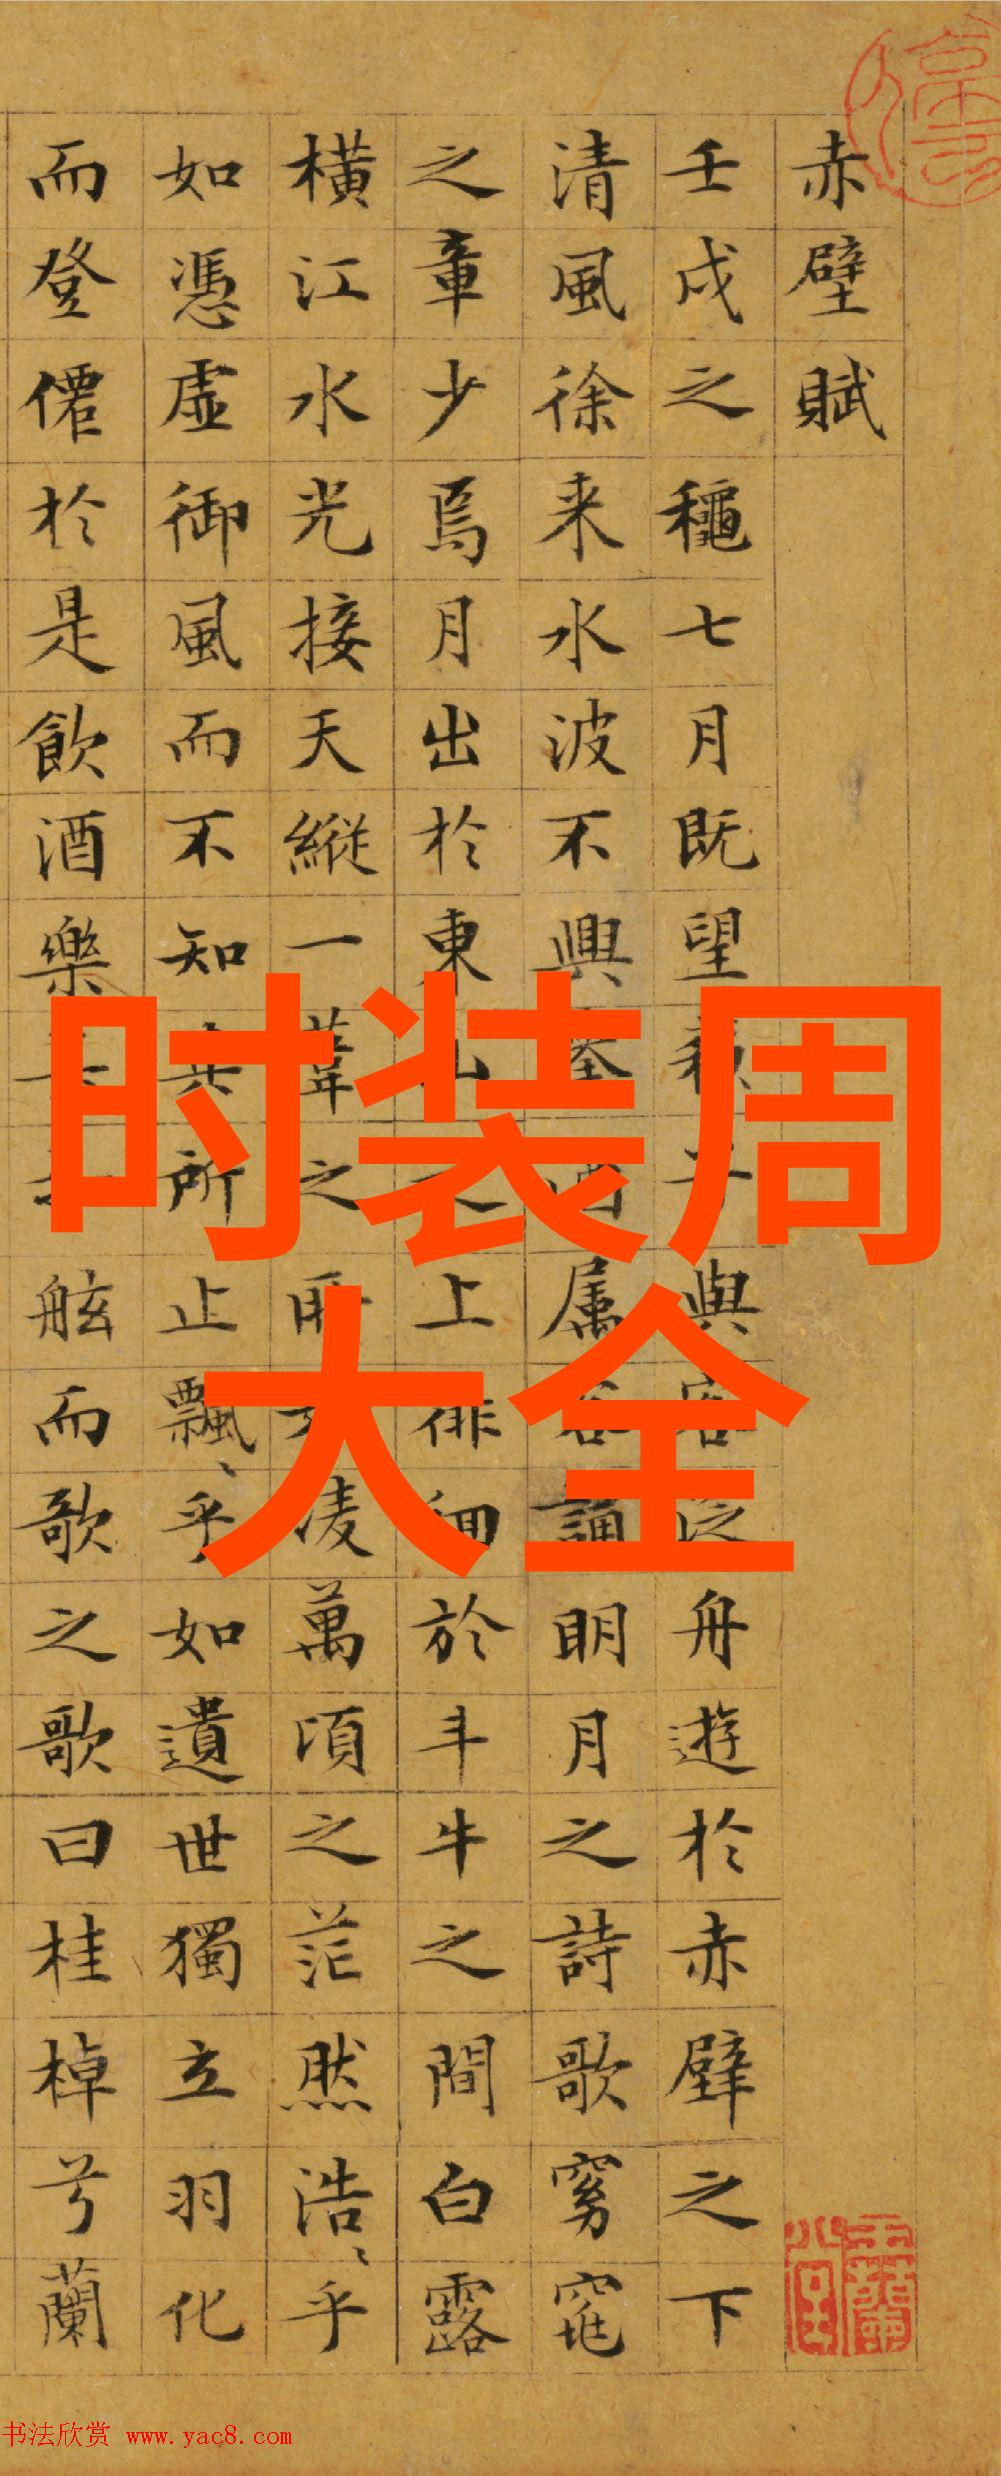 赤壁賦
壬戌之龝七月既望蘓子與客泛舟遊於赤壁之下
清風徐来水波不興舉酒属客誦明月之詩歌窈窕
之章少焉月出於東山之上徘徊於斗牛之間白露
橫江水光接天縱一葦之所如凌萬頃之茫然浩〻乎
如憑虛御風而不知其所止飄〻乎如遺世獨立羽化
而登僊於是飲酒樂甚扣舷而歌之歌曰桂棹兮蘭
时装周
大全
书法欣赏 www.yac8.com